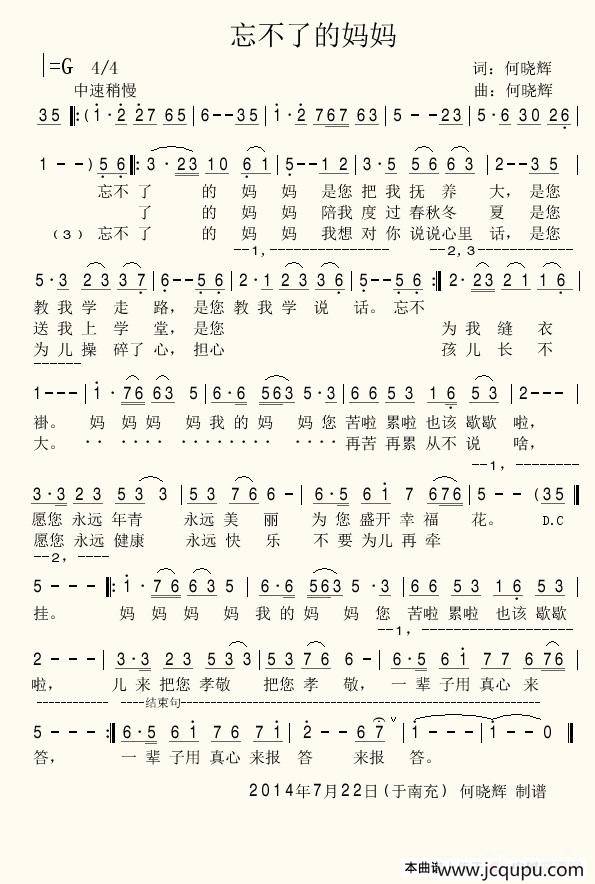 忘不了的妈妈
1=G 4/4 词：何晓辉
中速稍慢 曲：何晓辉
3 5 ‖:(1·2 2 7 6 5 | 6 - - 3 5 | 1·2 7 6 7 6 3 | 5 - - 2 3 | 5·6 3 0 2 6 |
1 - - ) 5 6 ‖: 3·2 3 1 0 6 1 | 5 - 1 2 | 3·5 5 6 6 3 | 2 - - 3 5 |
忘不了 的 妈 妈 是您 把 我 抚 养 大，是您
了 的 妈 妈 陪我 度 过 春秋冬 夏 是您
（3）忘不了 的 妈 妈 我想 对 你 说说心里 话，是您
--1,---------------- --2,3-------------
5·3 2 3 3 7 | 6 - - 5 6 | 2·1 2 3 3 6 | 5 - - 5 6 :‖ 2·2 3 2 1 1 6 |
教 我 学 走 路，是您 教 我 学 说 话。忘不
送 我 上 学 堂，是您 为 我 缝 衣
为 儿 操 碎了 心，担心 孩 儿 长 不
------
1 - - - | 1·7 6 6 3 5 | 6·6 5 6 3 5·3 | 6 6 5 3 1 6 5 3 | 2 - - - |
褂。 妈 妈妈 妈 我 的 妈 妈 您 苦啦 累啦 也该 歇歇 啦，
大。 ·· ······ ········ ··· 再苦 再累 从不 说 啥，
--1，--------
3·3 2 3 5 3 3 | 5 3 7 6 6 - | 6·5 6 1 7 6 7 6 | 5 - - (3 5 ‖
愿您 永远 年青 永远 美 丽 为 您 盛开 幸 福 花。 D.C
愿您 永远 健康 永远 快 乐 不 要 为儿 再 牵
--2，----
5 - - - ‖: 1·7 6 6 3 5 | 6·6 5 6 3 5·3 | 6 6 5 3 1 6 5 3 |
挂。 妈 妈妈 妈 我 的 妈 妈 您 苦啦 累啦 也该 歇歇
--1，------------------
2 - - - | 3·3 2 3 5 3 3 | 5 3 7 6 6 - | 6·5 6 1 7 7 6 7 6 |
啦， 儿 来 把您 孝敬 把您 孝 敬，一 辈 子用 真心 来
------------ ----结束句----------------------------------
5 - - - :‖ 6·5 6 1 7 6 7 1 | 2 - - 6 7 ∨ | 1 - - - | 1 - - 0 ‖
答， 一 辈 子用 真心 来报 答 来报 答。
2014年7月22日(于南充) 何晓辉 制谱
本曲谱 www.jcqupu.com